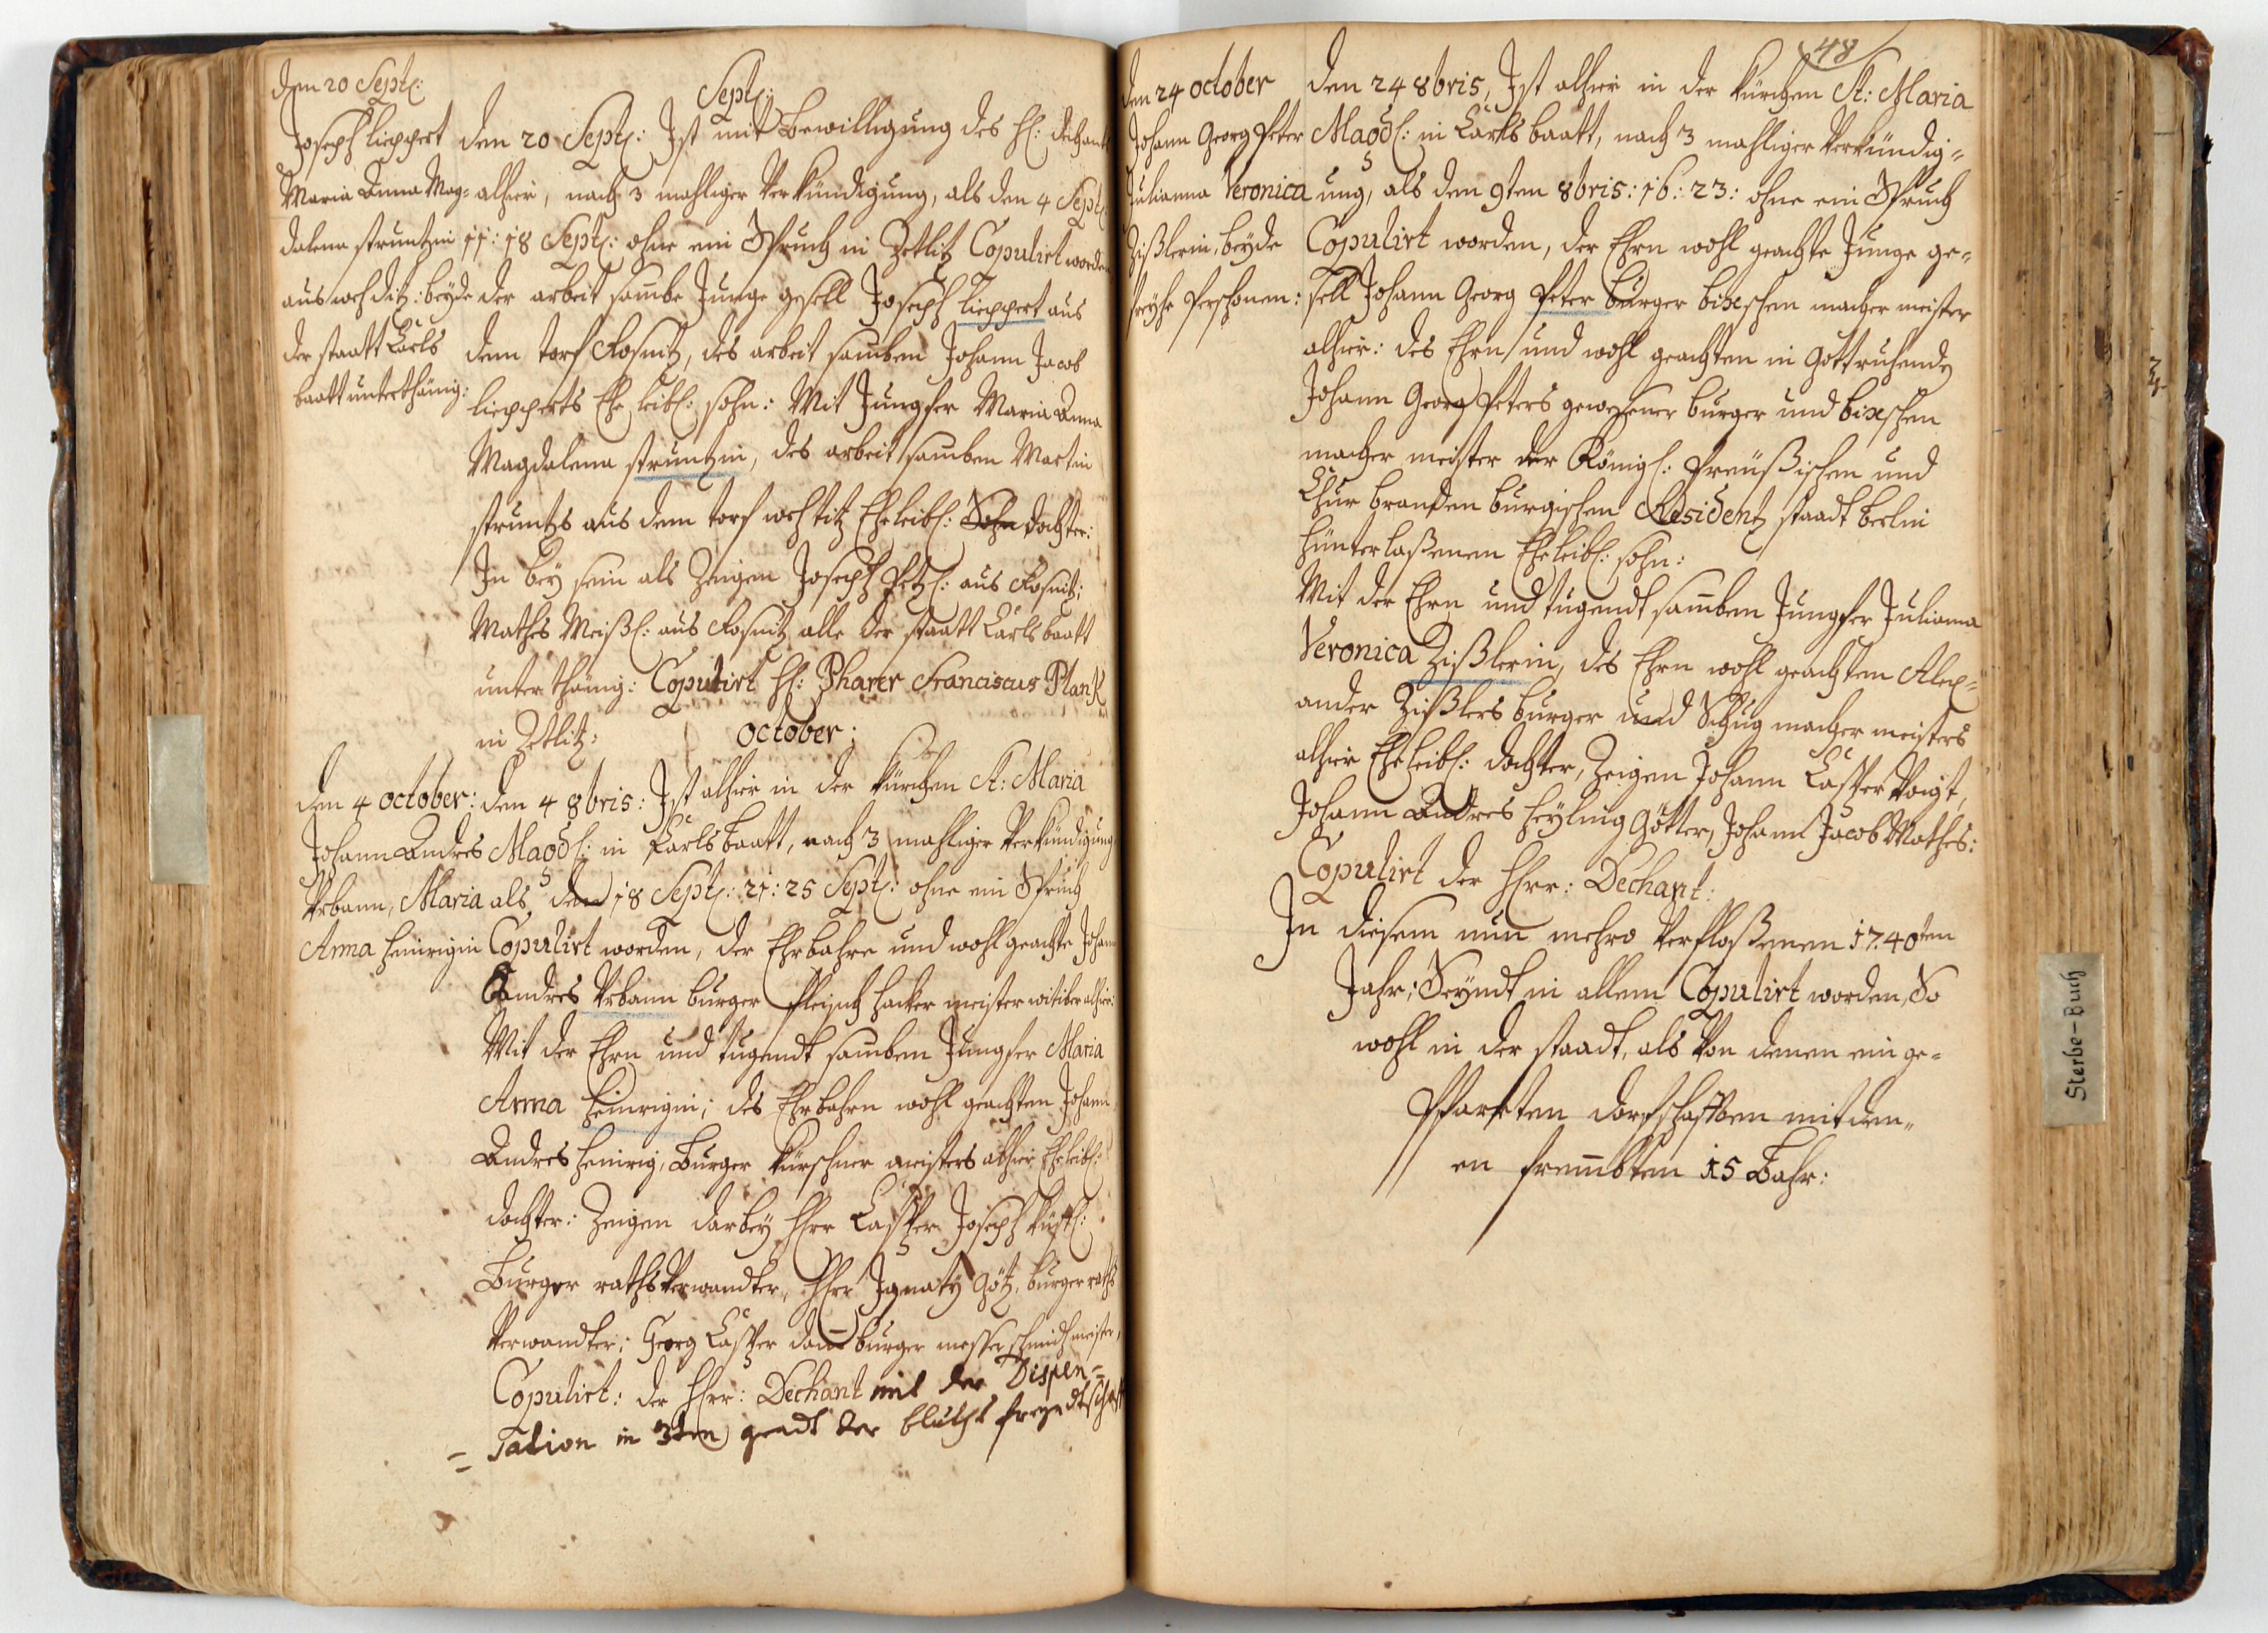 Sept:
den 20 Sept:
Joseph Lieppert
Maria Anna Mag=
dalena Struntzin
aus wehditz: beyde
der staatt Carls
baatt unterthänig:
den 20 Sept: Ist mit Bewilligung des H: dechants
alhier, nach 3 mahliger Verkündigung, als den 4 Sept:
11: 18 Sept: ohne ein Spruch in Zetlitz Copulirt worden
der arbeit sambe Junge gesell Joseph Lieppert aus
dem torf Rosnitz, des arbeit samben Johann Jacob
Liepperts Ehe leibl: sohn: Mit Jungfer Maria Anna
Magdalena Struntzin, des arbeit samben Martin
Struntz aus dem torf wehtitz Eheleibl: Sohn dochter:
In bey sein als Zeigen Joseph Petzl: aus Rosnitz;
Mathes Meißl: aus Rosnitz alle der staatt Carls baatt
unterthänig: Copulirt H: Pharer Franciscus Plank
in Zetlitz:
october:
den 4 october:
Johann Andres
Urbann, Maria
Anna Heinrigin
den 4 8bris: Ist alhier in der kürchen St: Maria
Magdl: in Carlsbaatt, nach 3 mahliger Verkündigung
als den 18 Sept: 21: 25 Sept: ohne ein Spruch
Copulirt worden, der Ehrbahre und wohl geachte Johann
Andres Urbann burger fleisch hacker meister witiber alhier:
Mit der Ehrn und tugendt samben Jungfer Maria
Anna Heinrigin; des Ehrbahrn wohl geachten Johann
Andres Heinrig, Burger kürschner meisters alhier Eheleibl:
dochter: Zeigen darbey Herr Casper Joseph
Burger rathsverwandter, Herr Ignatÿ Götz, burger raths
Verwandter; Georg Casper burger messerschmidt meister,
Copulirt: der Herr: Dechant mit der Dispen=
=sation in 3ten gradt der bluths freyndtschafft
48
den 24 october
Johann Georg Peter
Julianna Veronica
Zißlerin, beyde
freyhe Persohnen:
den 24 8bris, Ist alhier in der kürchen St: Maria
Magdl: in Carlsbaatt, nach 3 mahliger Verkündig=
ung, als den 9ten 8bris: 16: 23: ohne ein Spruch
Copulirt worden, der Ehrn wohl geachte Junge ge=
sell Johann Georg Peter burger bixschen macher meister
alhier: des Ehrn und wohl geachten in Gott ruhende
Johann Georg Peters gewesener burger und bixschen
macher meister der Königl: Preüßischen und
Chur brandenburgischen Residentz staadt berlin
hünterlaßenen Eheleibl: sohn:
Mit der Ehrn und tugendt samben Jungfer Julianna
Veronica Zißlerin, des Ehrn wohl geachten Alex=
ander Zißlers burger und Schug macher meisters
alhier Eheleibl: dochter, Zeigen Johann Casper Voigt,
Johann Andres Heyling Götter, Johann Jacob Mathes:
Copulirt der Herr: Dechant:
In diesem nun mehro Verfloßenen 1740ten
Jahr; Seyndt in allem Copulirt worden, So
wohl in der staadt, als Von denen ein ge=
Pfarten dorfschafften mit den=
en frembten 15 Pahr:
Sterbe-Buch